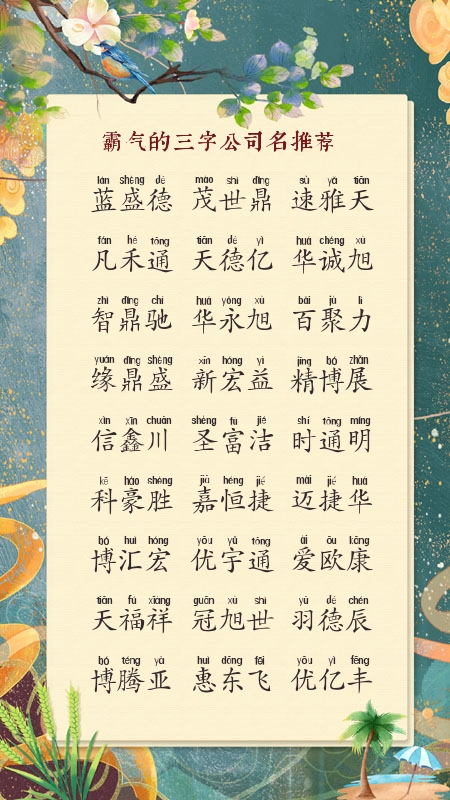 霸气的三字公司名推荐
lán shèng dé mào shì dǐng sù yǎ tiān
蓝盛德 茂世鼎 速雅天
fán hé tōng tiān dé yì huá chéng xù
凡禾通 天德亿 华诚旭
zhì dǐng chí huá yǒng xù bǎi jù lì
智鼎驰 华永旭 百聚力
yuán dǐng shèng xīn hóng yì jīng bó zhǎn
缘鼎盛 新宏益 精博展
xìn xīn chuān shèng fù jié shí tōng míng
信鑫川 圣富洁 时通明
kē háo shèng jiā héng jié mài jié huá
科豪胜 嘉恒捷 迈捷华
bó huì hóng yōu yǔ tōng ài ōu kāng
博汇宏 优宇通 爱欧康
tiān fú xiáng guān xù shì yǔ dé chén
天福祥 冠旭世 羽德辰
bó téng yà huì dōng fēi yōu yì fēng
博腾亚 惠东飞 优亿丰